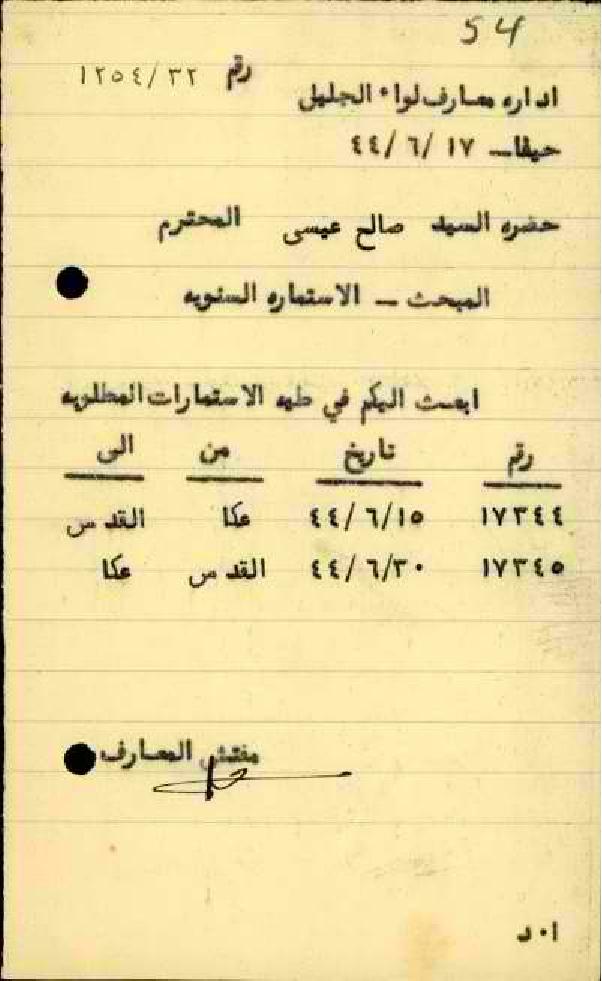 54
رقم ١٢٥٤/٣٢
اداره معارف لواء الجليل
حيفا ــ ١٧ /٦ /٤٤
حضره السيد صالح عيسى المحترم
المبحث ــ الاستماره السنويه
ابعث اليكم في طيه الاستمارات المطلوبه
رقم تاريخ من الى
١٧٣٤٤ ٤٤/٦/١٥ عكا القدس
١٧٣٤٥ ٤٤/٦/٣٠ القدس عكا
مفتش المعارف
ا٠د